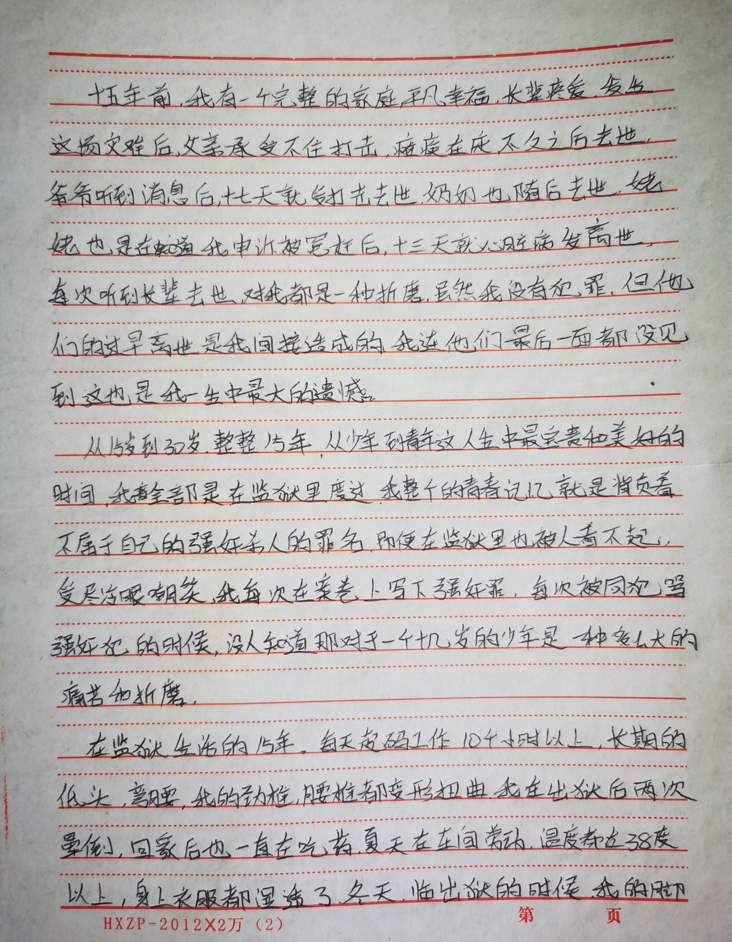 十五年前，我有一个完整的家庭，平凡幸福，长辈疼爱，发生
这场灾难后，父亲承受不住打击，瘫痪在床，不久之后去世，
爷爷听到消息后，十七天就受打击去世，奶奶也随后去世，姥
姥也是在知道我申诉被冤枉后，十三天就心脏病发离世，
每次听到长辈去世，对我都是一种折磨，虽然我没有犯罪，但他
们的过早离世是我间接造成的，我连他们最后一面都没见
到，这也是我一生中最大的遗憾。
从15岁到30岁，整整15年，从少年到青年这人生中最宝贵和美好的
时间，我全部是在监狱里度过，我整个的青春记忆就是背负着
不属于自己的强奸杀人的罪名，即使在监狱里也被人看不起，
受尽冷眼嘲笑，我每次在案卷上写下强奸罪，每次被同犯骂
强奸犯的时候，没人知道那对于一个十几岁的少年是一种多么大的
痛苦和折磨。
在监狱生活的15年，每天起码工作10个小时以上，长期的
低头，弯腰，我的劲椎，腰椎都变形扭曲，我在出狱后两次
晕倒，回家后也一直在吃药，夏天在车间劳动，温度都在38度
以上，身上衣服都湿透了，冬天，临出狱的时候，我的脚
HXZP-2012X2万（2） 第 页